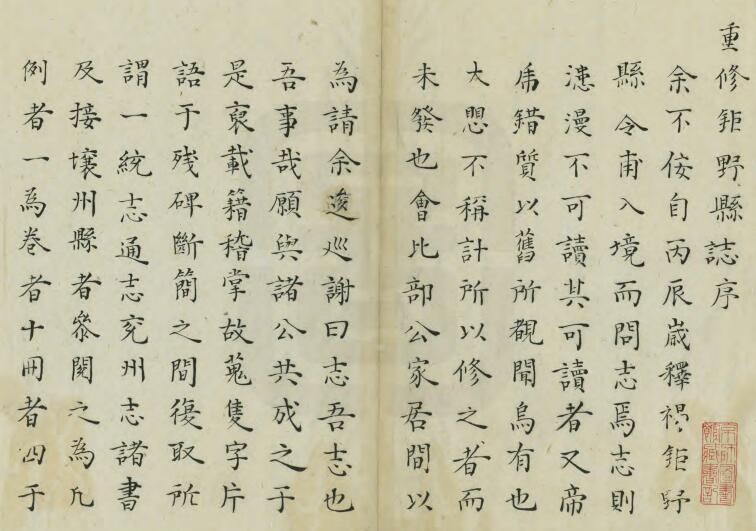 重修鉅野縣誌序
余不佞自丙辰歲釋褐鉅野
縣令甫入境而問志焉志則
漶漫不可讀其可讀者又帝
虎錯質以舊所覩聞烏有也
大懼不稱計所以修之者而
未發也會比部公家居間以
為請余逡巡謝曰志吾志也
吾事哉願與諸公共成之于
是裒載籍稽掌故蒐隻字片
語于残碑斷簡之間復取所
謂一統志通志兖州志諸書
及接壤州縣者叅閱之為凡
例者一為卷者十冊者四于